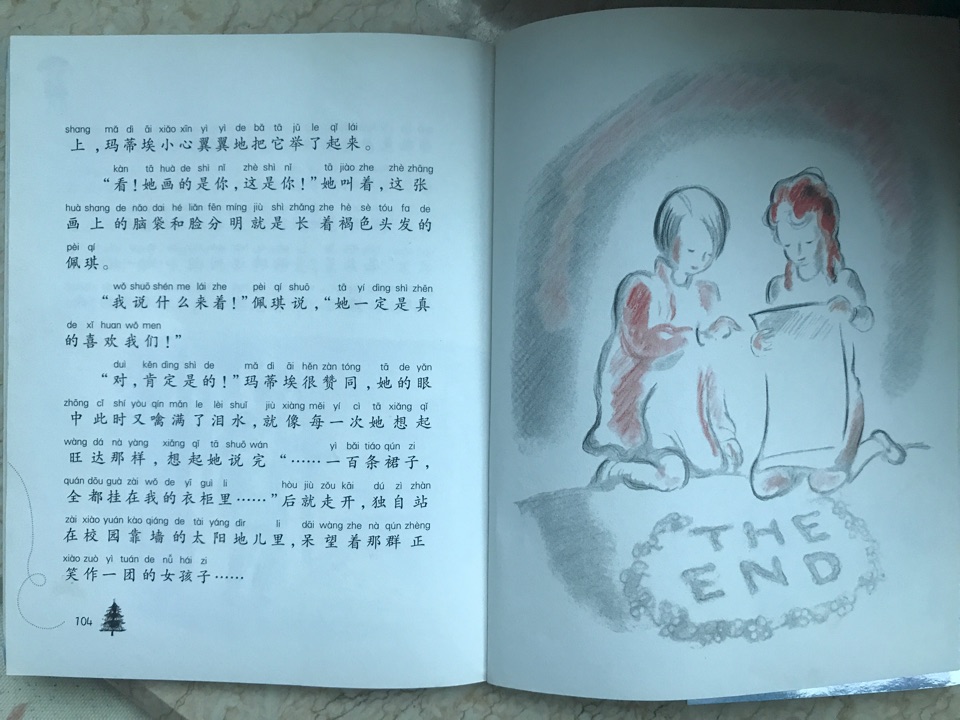 shang mǎ dì āi xiǎo xīn yì yì de bǎ tā jǔ le qǐ lái
上,玛蒂埃小心翼翼地把它举了起来。
kàn tā huà de shì nǐ zhè shì nǐ tā jiào zhe zhè zhāng
“看!她画的是你,这是你!”她叫着,这张
huà shang de nǎo dai hé liǎn fēn míng jiù shì zhǎng zhe hè sè tóu fa de
画上的脑袋和脸分明就是长着褐色头发的
pèi qí
佩琪。
wǒ shuō shén me lái zhe pèi qí shuō tā yí dìng shì zhēn
“我说什么来着!”佩琪说,“她一定是真
de xǐ huan wǒ men
的喜欢我们!”
duì kěn dìng shì de mǎ dì āi hěn zàn tóng tā de yǎn
“对,肯定是的!”玛蒂埃很赞同,她的眼
zhōng cǐ shí yòu qín mǎn le lèi shuǐ jiù xiàng měi yí cì tā xiǎng qǐ
中此时又噙满了泪水,就像每一次她想起
wàng dá nà yàng xiǎng qǐ tā shuō wán yì bǎi tiáo qún zi
旺达那样,想起她说完“……一百条裙子,
quán dōu guà zài wǒ de yī guì li hòu jiù zǒu kāi dú zì zhàn
全都挂在我的衣柜里……”后就走开,独自站
zài xiào yuán kào qiáng de tài yáng dìr li dāi wàng zhe nà qún zhèng
在校园靠墙的太阳地儿里,呆望着那群正
xiào zuò yì tuán de nǚ hái zi
笑作一团的女孩子……
104
THE
END